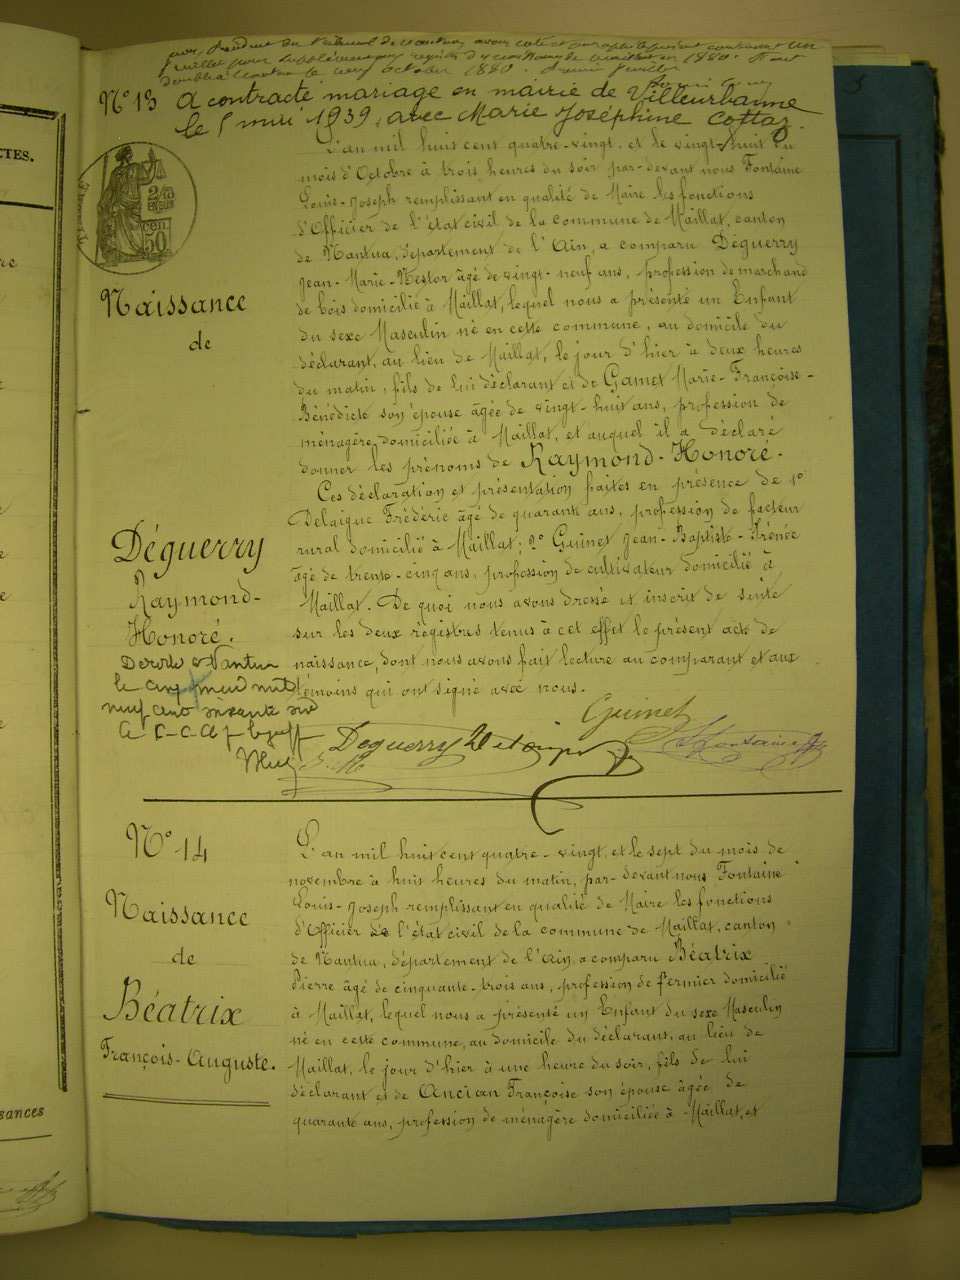 feuillet pour supplément au registre de naissances de Maillat en 1880. Fait
double à Nantua le vingt octobre 1880.
N° 13 A contracté mariage en mairie de Villeurbanne
le 5 mai 1939, avec Marie Joséphine Cottaz.
L'an mil huit cent quatre-vingt, et le vingt-huit du
mois d'Octobre à trois heures du soir par-devant nous Fontaine
Louis-Joseph remplissant en qualité de Maire les fonctions
d'Officier de l'état civil de la commune de Maillat, canton
de Nantua, département de l'Ain, a comparu Déguerry
Jean-Marie-Nestor âgé de vingt-neuf ans, profession de marchand
de bois domicilié à Maillat, lequel nous a présenté un Enfant
du sexe Masculin né en cette commune, au domicile du
déclarant, au lieu de Maillat, le jour d'hier à deux heures
du matin, fils de lui déclarant et de Gamet Marie-Françoise-
Bénédicte son épouse âgée de vingt-huit ans, profession de
ménagère domiciliée à Maillat, et auquel il a déclaré
donner les prénoms de Raymond-Honoré.
Ces déclaration et présentation faites en présence de 1°
Delaigue Frédéric âgé de quarante ans, profession de facteur
rural domicilié à Maillat; 2° Guinet Jean-Baptiste-Irénée
âgé de trente-cinq ans, profession de cultivateur domicilié à
Maillat. De quoi nous avons dressé et inscrit de suite
sur les deux registres tenus à cet effet le présent acte de
naissance, dont nous avons fait lecture au comparant et aux
témoins qui ont signé avec nous.
Naissance
de
Déguerry
Raymond-
Honoré.
Décédé à Nantua
le cinq
neuf cent soixante six
Guinet
Déguerry
Fontaine
CTES.
2/10
EN SUS
50
CEN.
N° 14
Naissance
de
Béatrix
François-Auguste.
L'an mil huit cent quatre-vingt, et le sept du mois de
novembre à huit heures du matin, par-devant nous Fontaine
Louis-Joseph remplissant en qualité de Maire les fonctions
d'Officier de l'état civil de la commune de Maillat, canton
de Nantua, département de l'Ain, a comparu Béatrix
Pierre âgé de cinquante-trois ans, profession de fermier domicilié
à Maillat, lequel nous a présenté un Enfant du sexe Masculin
né en cette commune, au domicile du déclarant, au lieu de
Maillat, le jour d'hier à une heure du soir, fils de lui
déclarant et de Ancian Françoise son épouse âgée de
quarante ans, profession de ménagère domiciliée à Maillat, et
sances